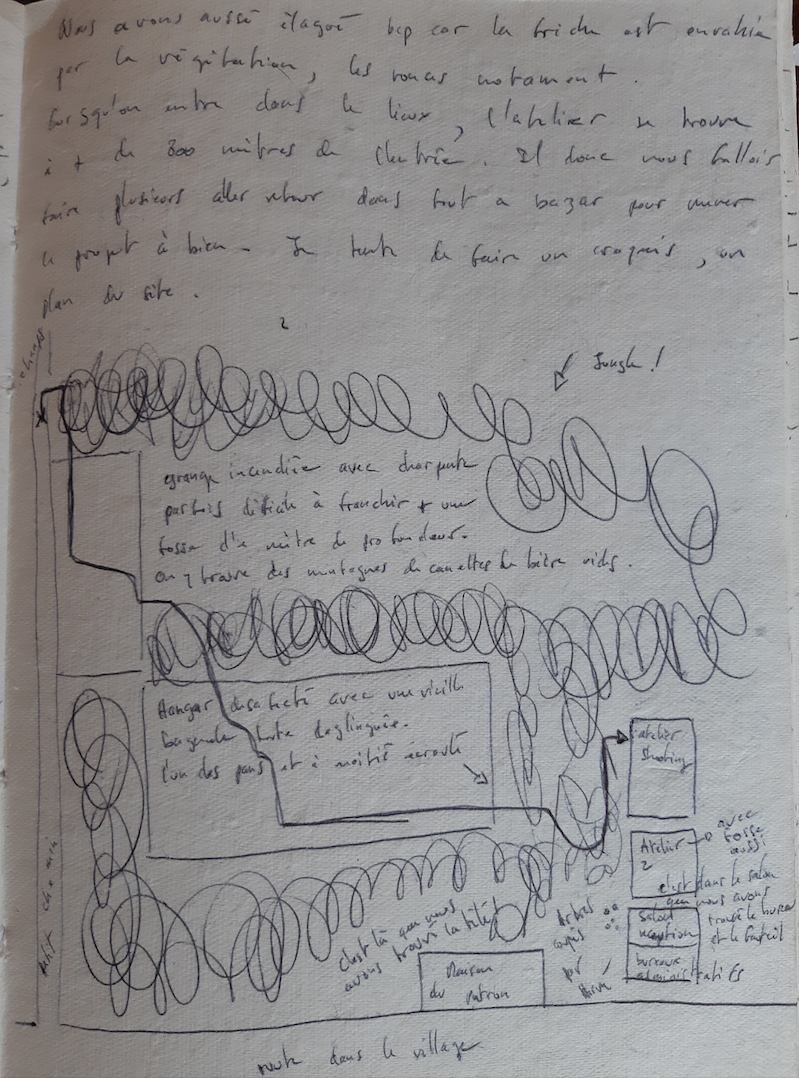 Nous avons aussi élagué bcp car la friche est envahie
par la végétation, les ronces notament.
Lorsqu'on entre dans le lieux, l'atelier se trouve
à + de 800 mètres de l'entrée. Il donc nous fallois
faire plusieurs aller retour dans tout ce bazar pour mener
le projet à bien. Je tente de faire un croquis, un
plan du site.
champs
Jungle !
grange incendiée avec charpente
parfois dificile à franchir + une
fosse d'1 mètre de profondeur.
On y trouve des montagnes de canettes de bière vides.
Hangar desafecté avec une vieille
bagnole toute deglinguée.
l'un des pans est à moitié écroulé
atelier
shooting
Atelier
2
avec
fosse
aussi
c'est dans le salon
que nous avons
trouvé le bureau
et le fauteuil
Salon
reception
bureaux
administratifs
Arbres
coupés
par
c'est là que nous
avons trouvé la télé !
Maison
du patron
petit chemin
route dans le village